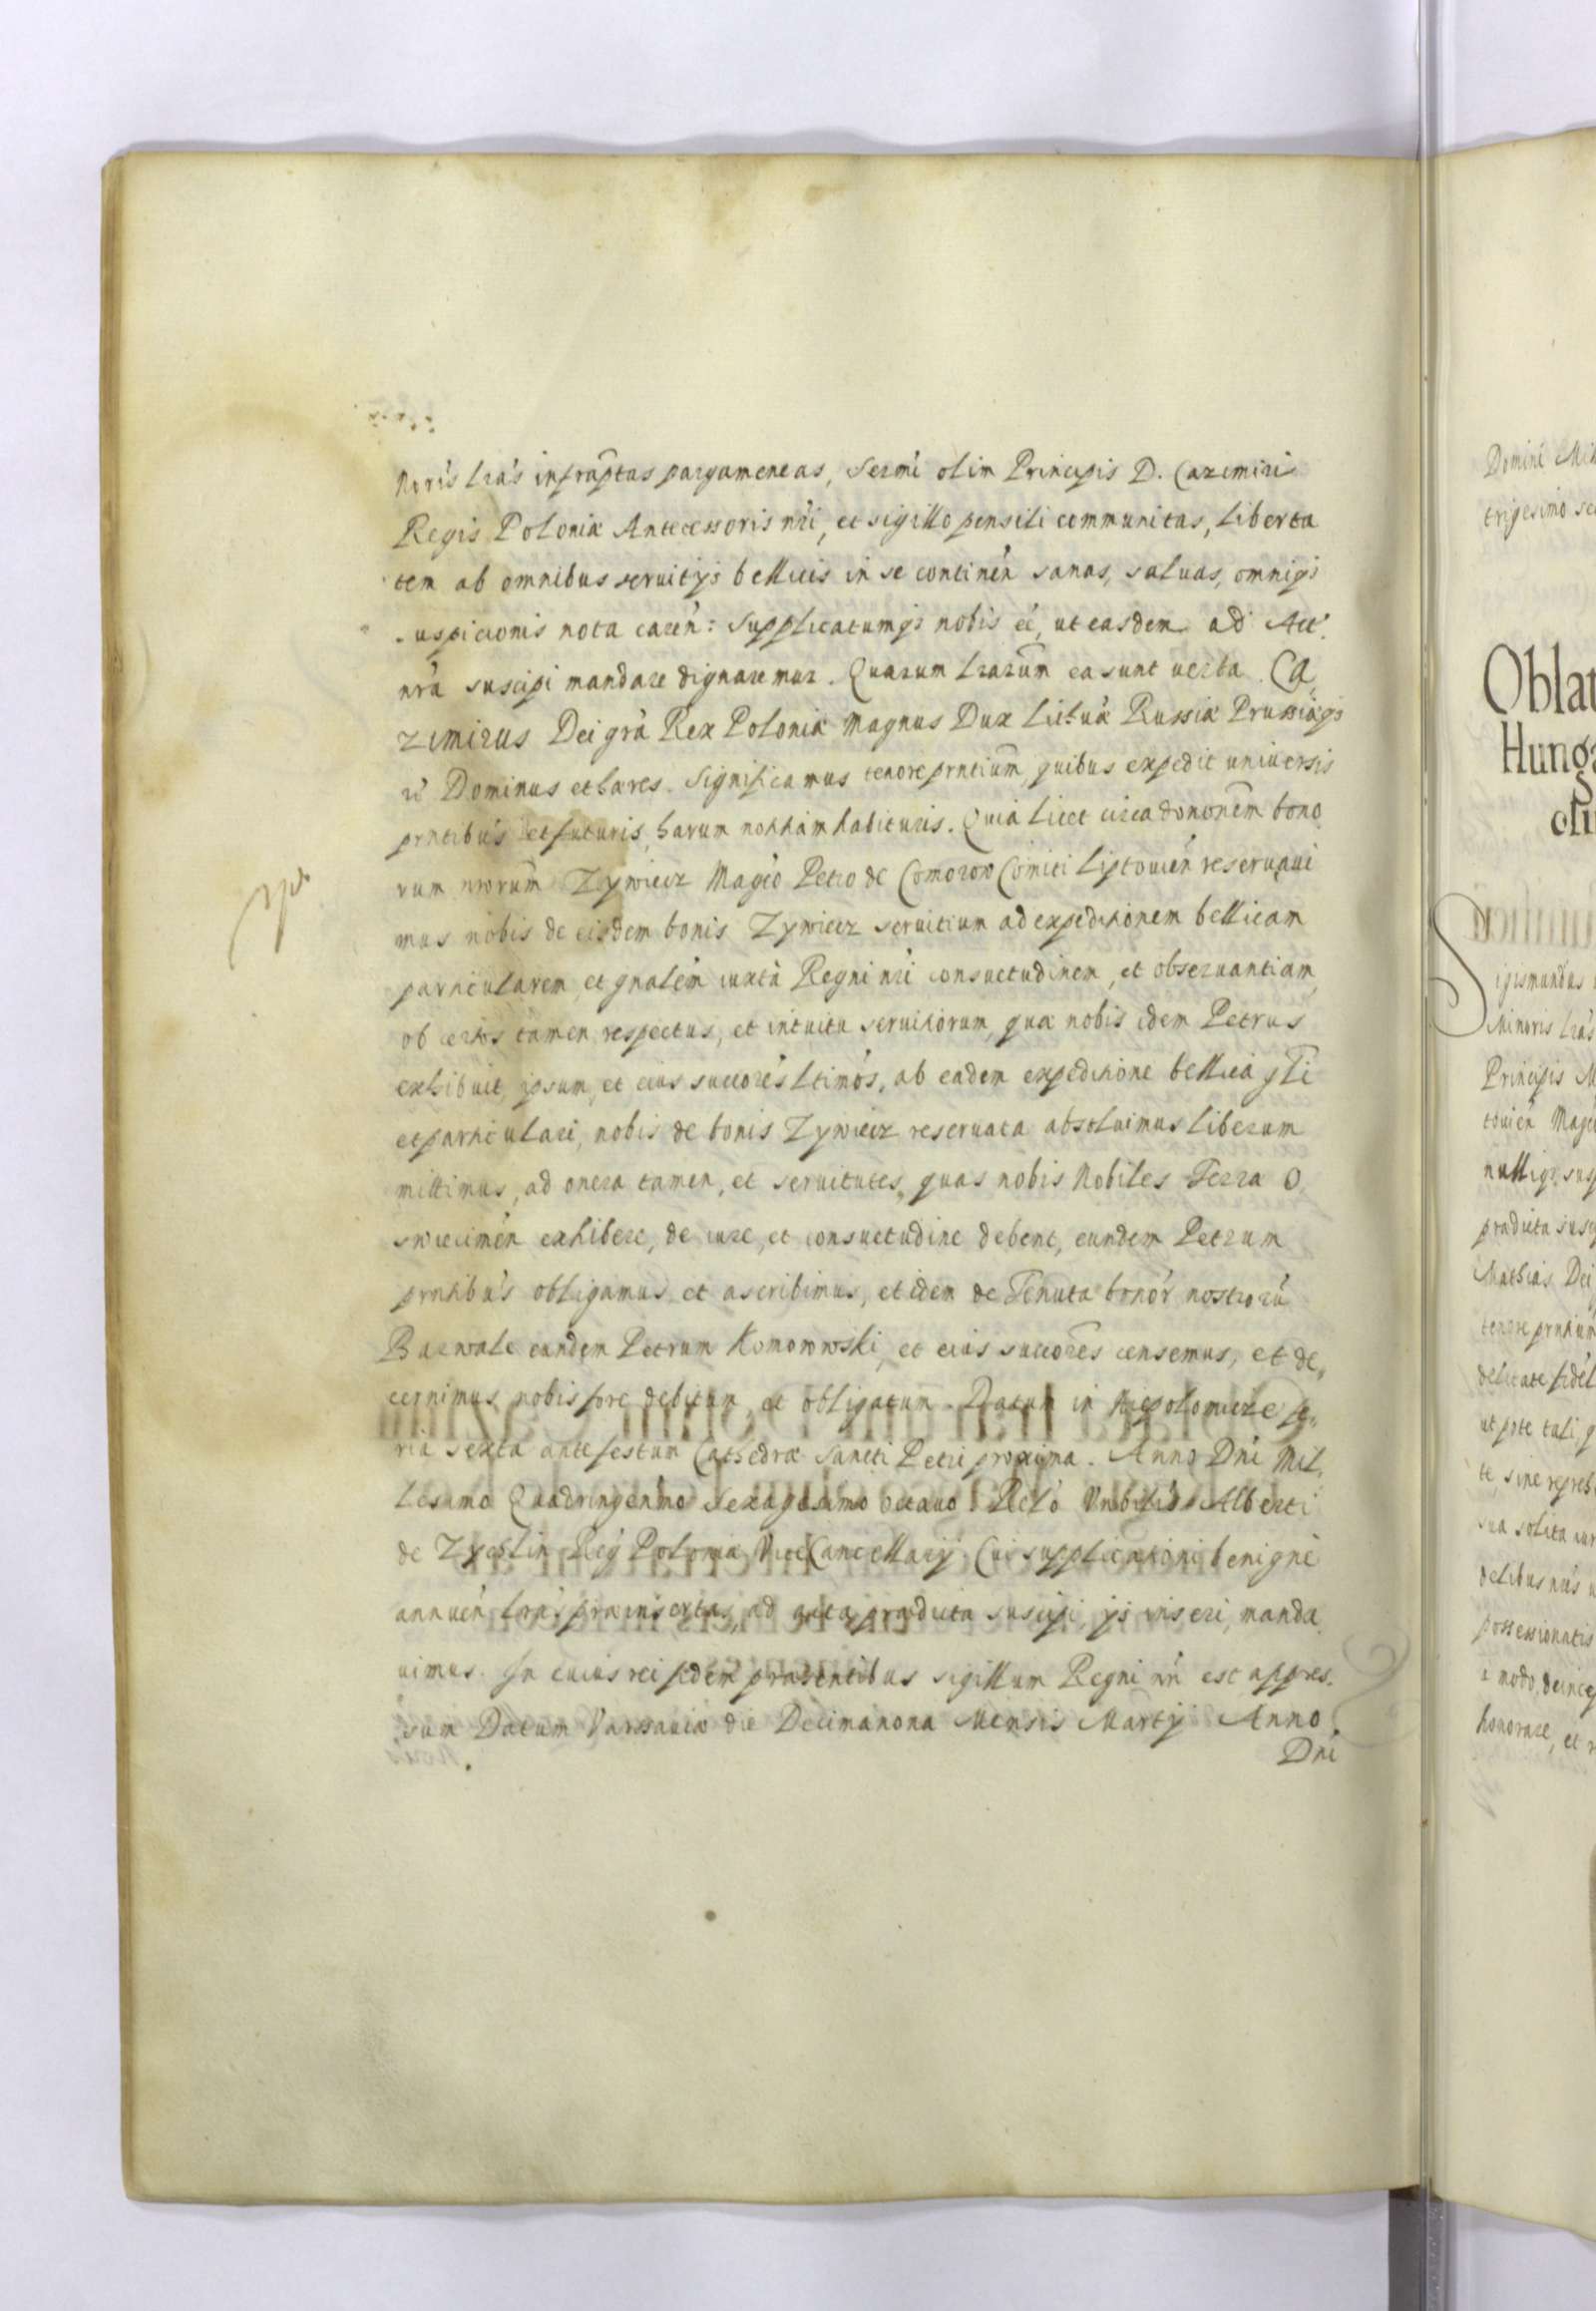 noris lrás infraptas pargameneas, Sermi olim Principis D. Cazimiri
Regis Poloniæ Antecessoris nri, et sigillo pensili communitas, liberta
tem ab omnibus seruitijs bellicis in se continén sanas, saluas, omniqs
suspicionis nota carén: Supplicatumqs nobis é, ut easdem ad Act
nrá suscipi mandare dignaremur. Quarum lrarum ea sunt uerba. Ca,
zimirus Dei grá Rex Poloniæ Magnus Dux Lithuá Russiæ Prussiæqs
Dominus et hæres. Significamus tenore prntium, quibus expedit uniuersis
prntibus et futuris, harum nottiam habituris. Quia licet circa dononem bono
rum nrorum Zywiecz Magco Petro de Comorow Comiti Liptouién reseruaui
mus nobis de eisdem bonis Zywiecz seruitium ad expeditionem bellicam
particularem et gnalem iuxta Regni nri consuetudinem, et obseruantiam,
ob certos tamen respectus, et intuitu seruitiorum, quæ nobis idem Petrus
exhibuit, ipsum, et eius succorés ltimós, ab eadem expeditione bellica gli
et particulari, nobis de bonis Zywiecz reseruata absoluimus liberum
mittimus, ad onera tamen, et seruitutes, quas nobis Nobiles Terræ O
swiecimén exhibere, de iure, et consuetudine debent, eundem Petrum
prntibus obligamus et ascribimus, et idem de Tenuta bonór nostroru
Barwalt eundem Petrum Komorowski, et eius succores censemus, et de,
cernimus nobis fore debitum et obligatum. Datum in Niepolomicze fe,
ria sexta ante festum Cathedræ Sancti Petri proxima. Anno Dni Mil,
lesimo Quadringenmo Sexagesimo octauo Relo Vnbilis Alberti
de Zychlin Reg Poloniæ ViceCancellarij. Cui supplicationi benigne
annuén lrás præinsertas, ad acta prædicta suscipi, ijs inseri, manda
uimus. In cuius rei fidem præsentibus sigillum Regni nri est appres.
sum Datum Varsauiæ die Decimanona Mensis Martij Anno
Dni
Domini
trigesimo
Oblat
Hung
Sigismundus
Minoris lrás
Principis
nulliqs
prædicta
Mathias Dei
tenore
ut pote tali
te, sine
sua solita
delibus nris
possessionatis
modo, deincep
honorare, et